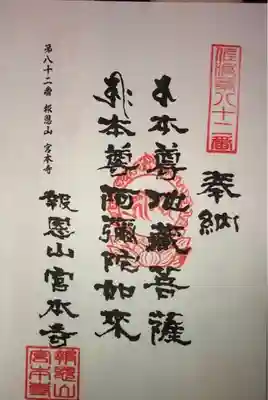 奉納
本尊地蔵菩薩
本尊阿彌陀如来
報恩山宮本寺
第八十二番 報恩山 宮本寺
八十二番
報恩山
宮本寺